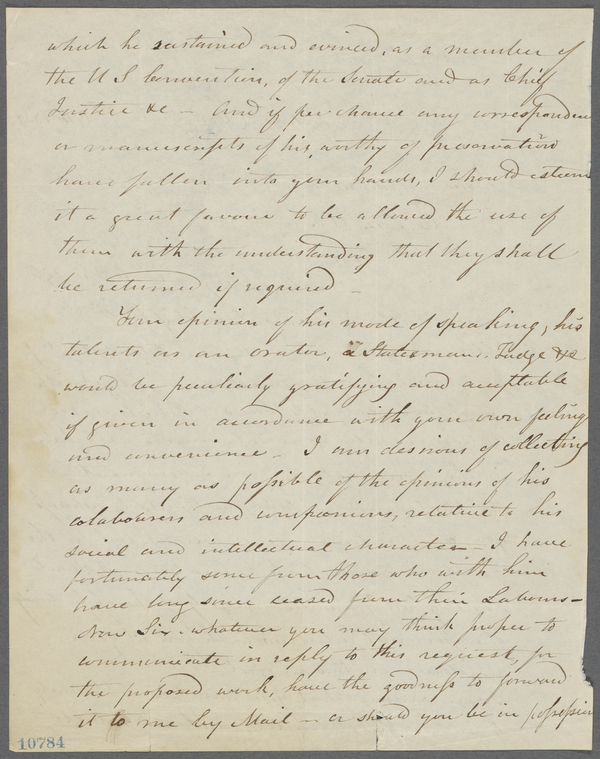 which he sustained and evinced, as a member of
the U S Convention, of the Senate and as Chief
Justice &c – And if per chance any corresponden
or manuscripts of his, worthy of preservation
have fallen into your hands, I should esteem
it a great favour to be allowed the use of
them with the understanding that they shall
be returned if required –
Your opinion of his mode of speaking, his
talents as an orator, a Statesman. Judge &c
would be peculiarly gratifying and acceptable
if given in accordance with your own feeling
and convenience – I am desirous of collecting
as many as possible of the opinions of his
colabourers and companions, relative to his
social and intellectual character – I have
fortunately some from those who with him
have long since ceased from their Labours –
Now Sir. whatever you may think proper to
communicate in reply to this request, for
the proposed work, have the goodness to forward
it to me by Mail – or should you be in possession
10784